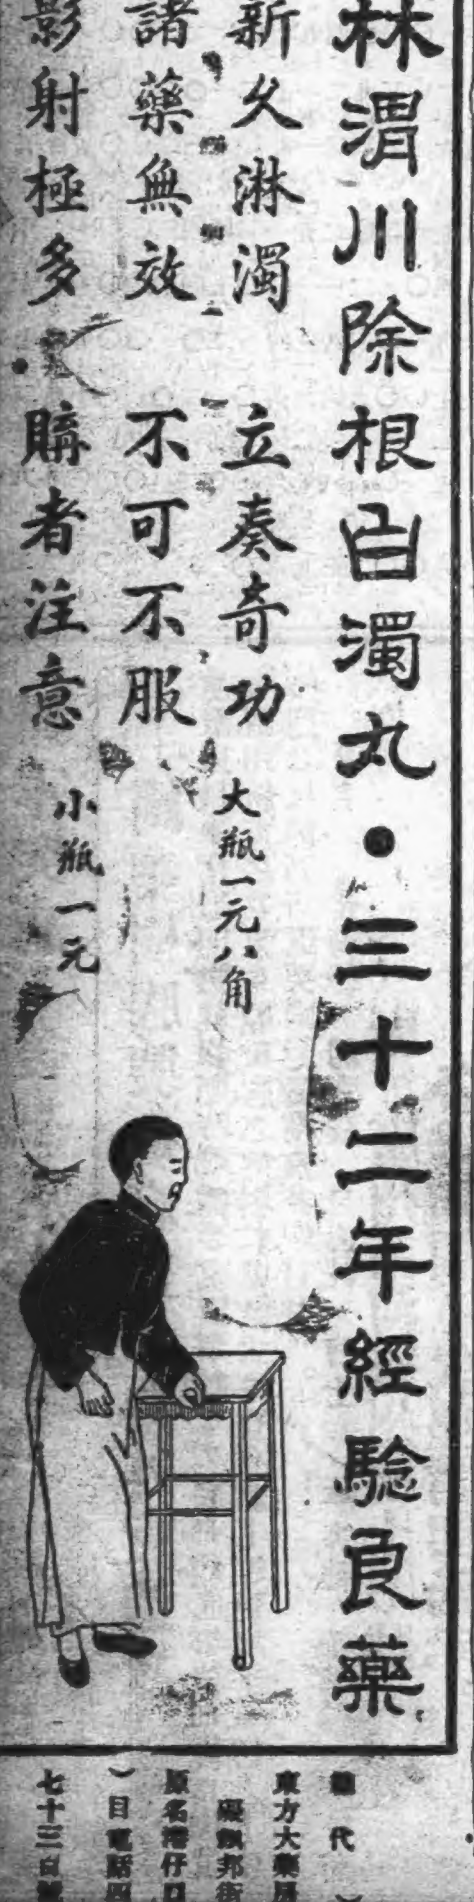 林渭川除根白濁丸・三十二年經驗良藥
新久淋濁 立奏奇功
大瓶一元八角
諸藥無效 不可不服
影射極多 購者注意
小瓶一元
東方大藥
原名
目電話四
七十三